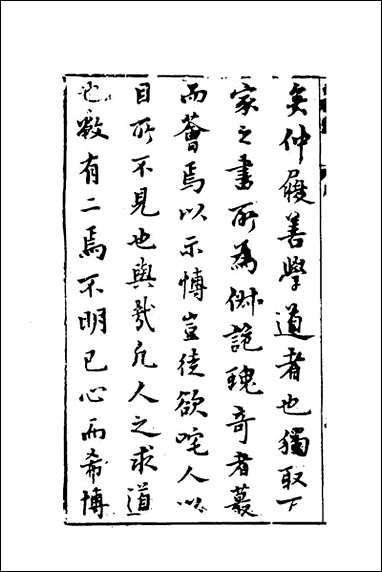 矣仲履善學道者也獨取下
家之書所為俶詭瑰奇者蕞
而薈焉以示博豈徒欲咤人以
目所不見也與哉凡人之求道
也敝有二焉不明己心而希博